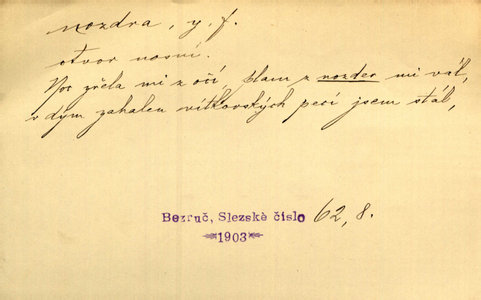 nozdra, y, f.
otvor nosní.
Noc zřela mi z očí, plam z nozder mi vál,
v dým zahalen vítkovských pecí jsem stál,
Bezruč, Slezské číslo 62, 8.
1903